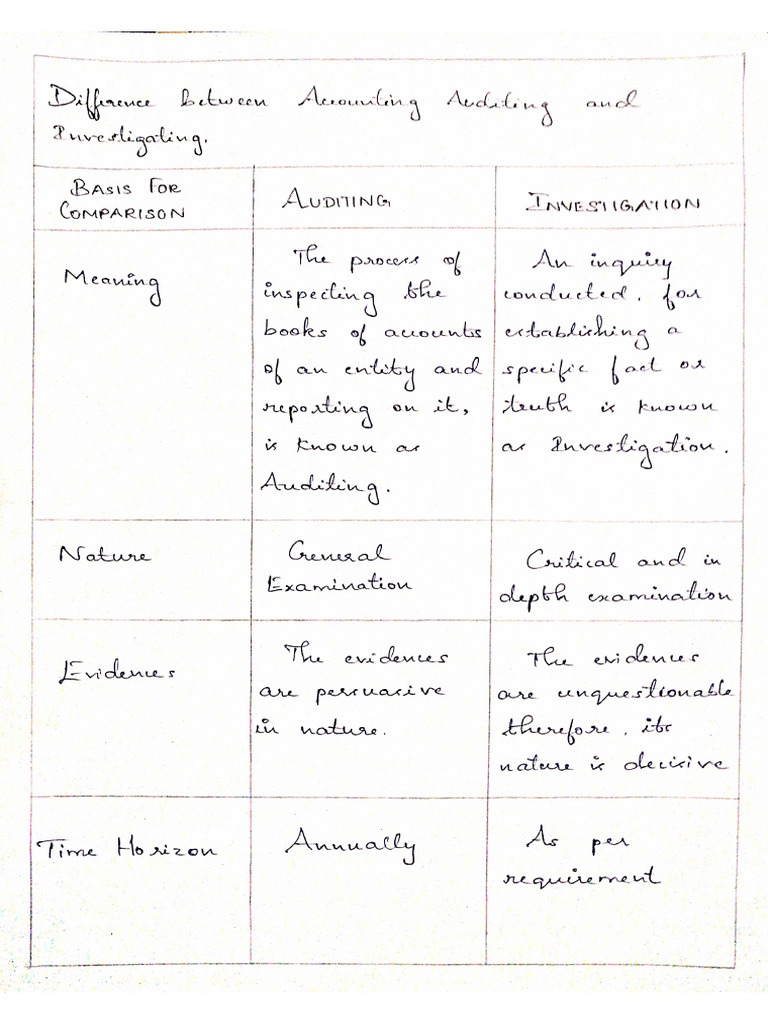 Difference between Accounting Auditing and
Investigating.
BASIS FOR
COMPARISON
AUDITING
INVESTIGATION
Meaning
The process of
inspecting the
books of accounts
of an entity and
reporting on it,
is known as
Auditing.
An inquiry
conducted. for
establishing a
specific fact or
truth is known
as Investigation.
Nature
General
Examination
Critical and in
depth examination
Evidences
The evidences
are persuasive
in nature.
The evidences
are unquestionable
therefore. its
nature is decisive
Time Horizon
Annually
As per
requirement